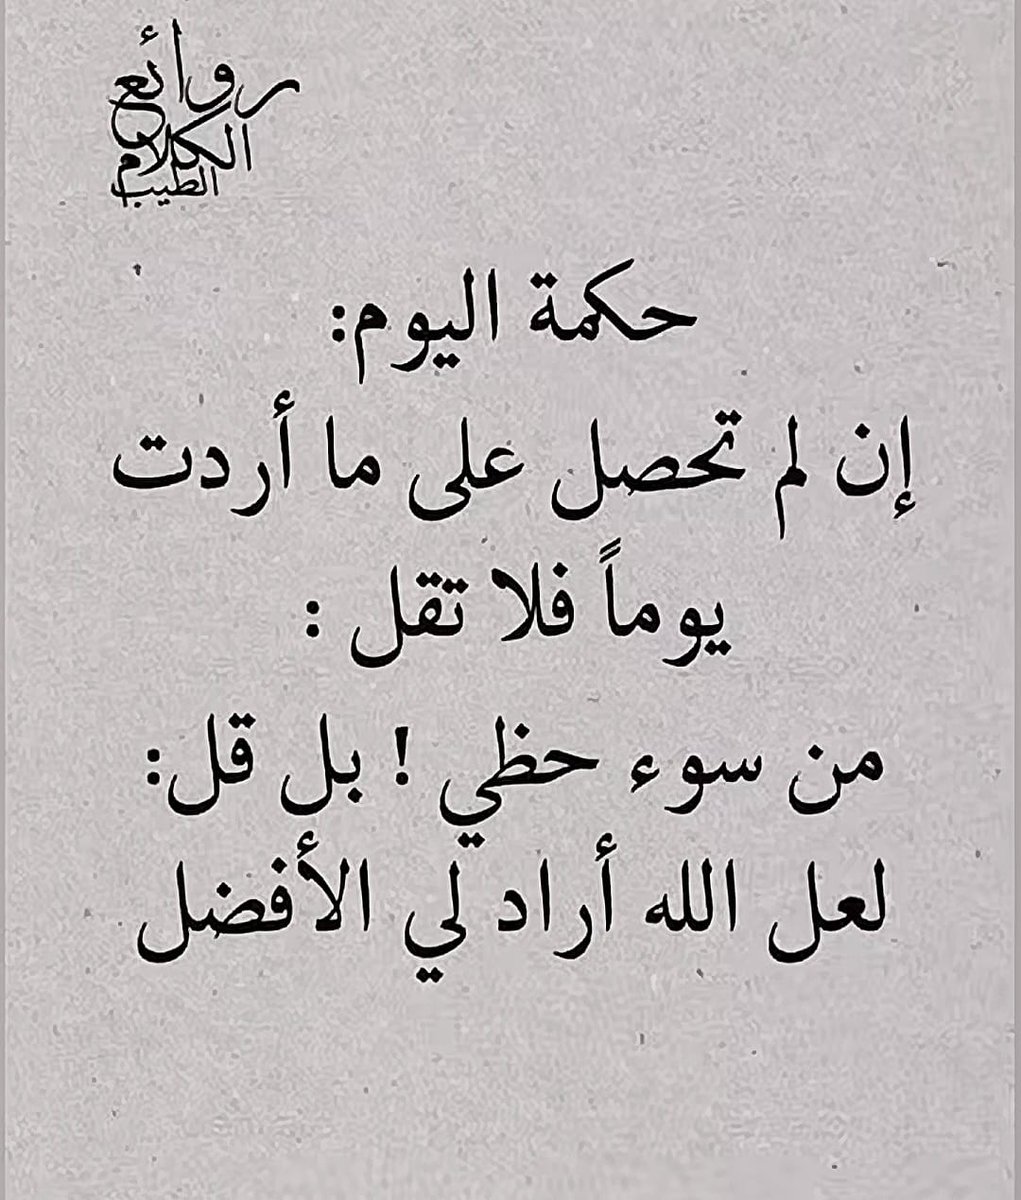 روائع
الكلام
الطيب
حكمة اليوم:
إن لم تحصل على ما أردت
يوماً فلا تقل :
من سوء حظي ! بل قل:
لعل الله أراد لي الأفضل